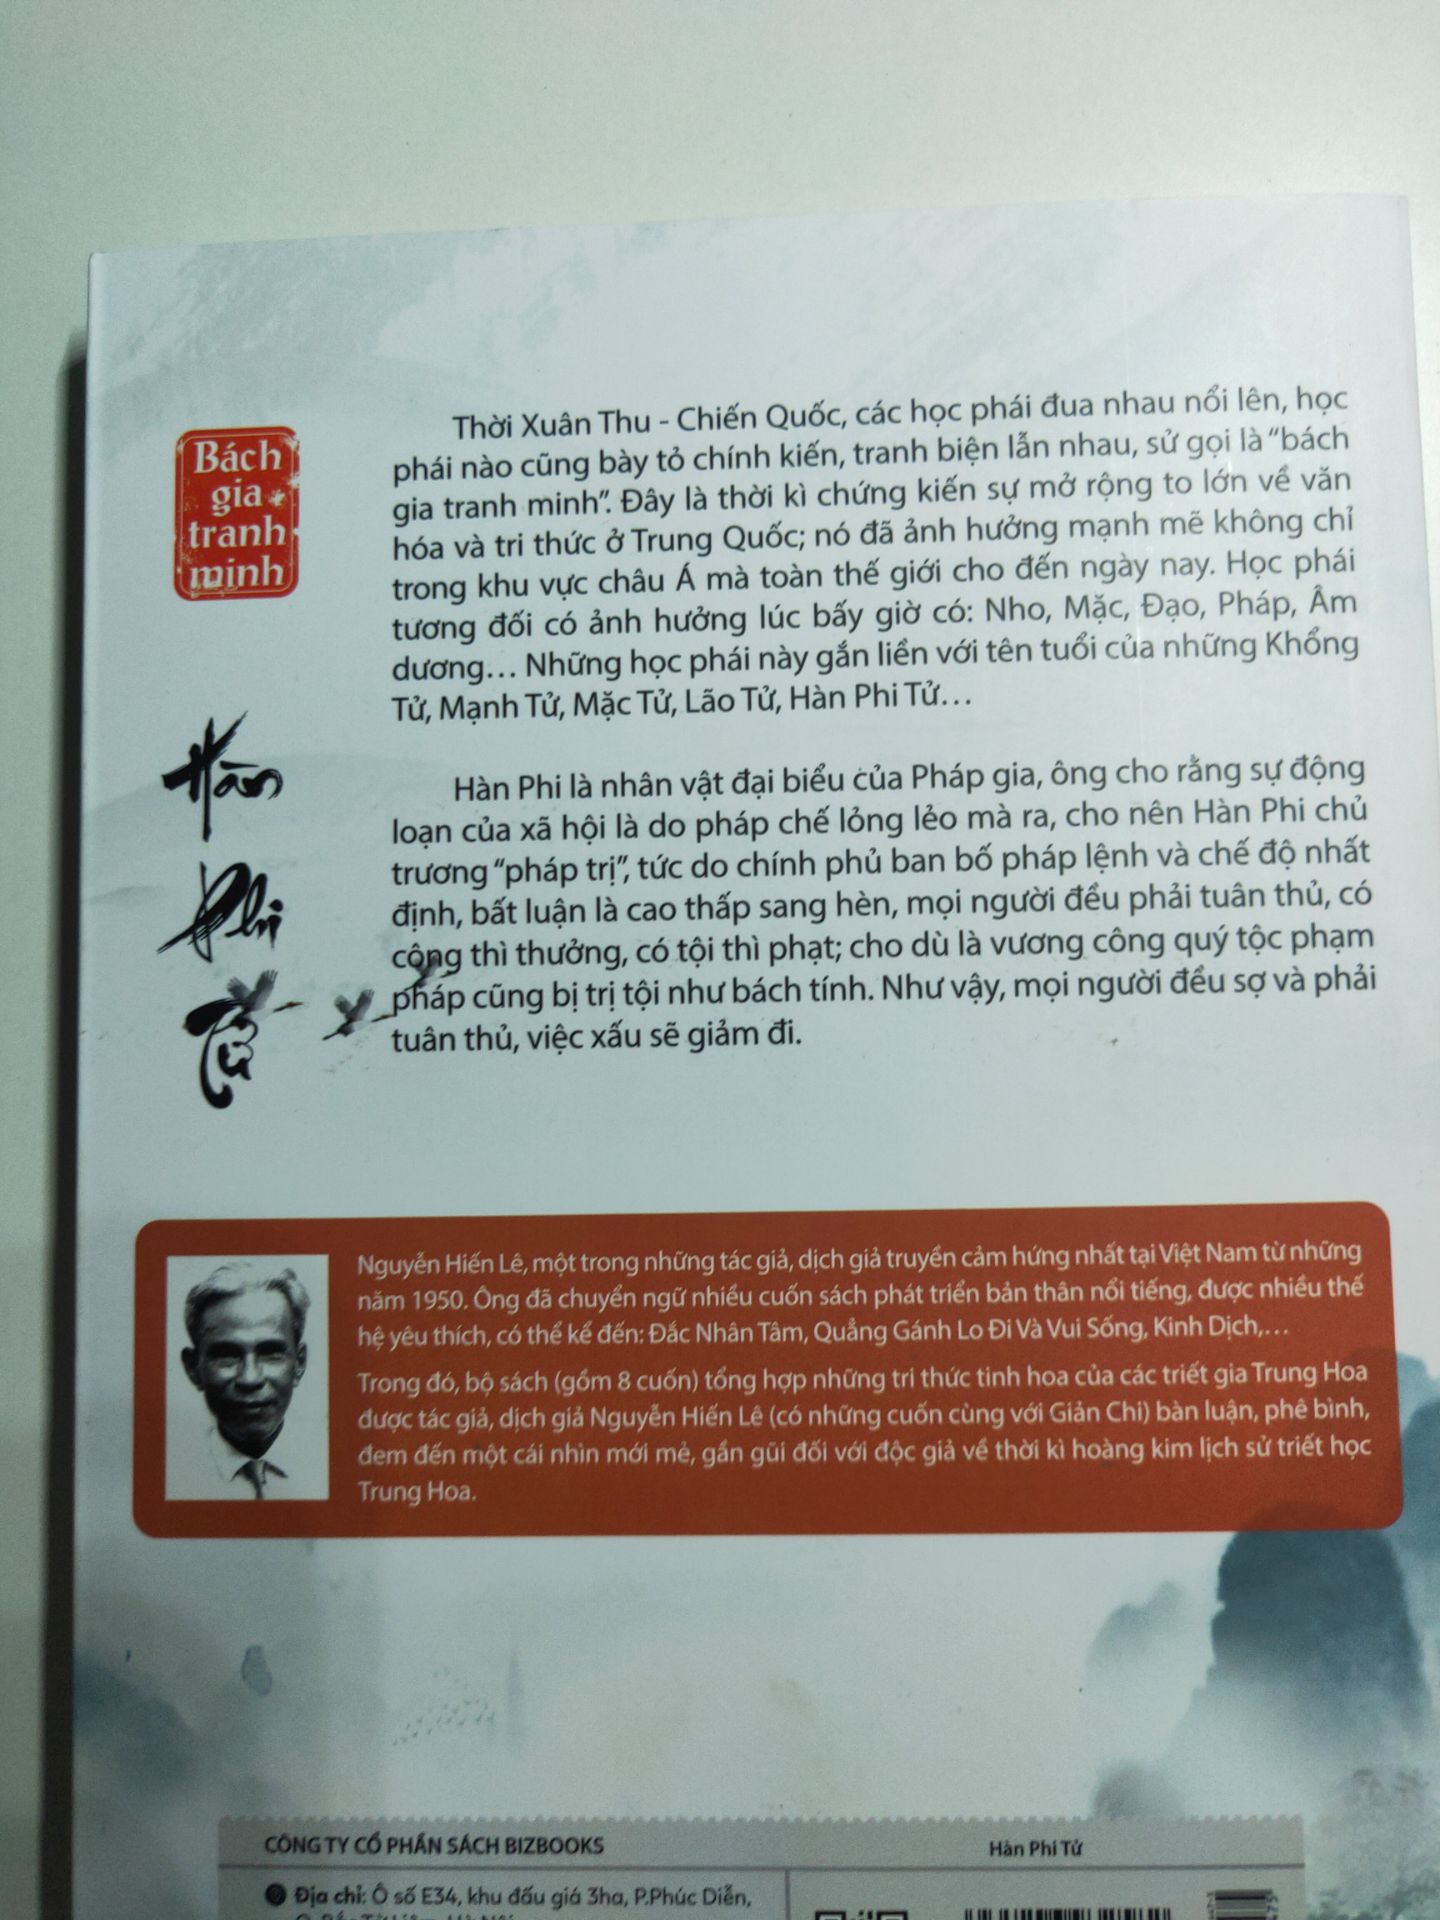 Bách
gia
tranh
minh
Hàn
Phi
Tử
Thời Xuân Thu - Chiến Quốc, các học phái đua nhau nổi lên, học
phái nào cũng bày tỏ chính kiến, tranh biện lẫn nhau, sử gọi là “bách
gia tranh minh”. Đây là thời kì chứng kiến sự mở rộng to lớn về văn
hóa và tri thức ở Trung Quốc; nó đã ảnh hưởng mạnh mẽ không chỉ
trong khu vực châu Á mà toàn thế giới cho đến ngày nay. Học phái
tương đối có ảnh hưởng lúc bấy giờ có: Nho, Mặc, Đạo, Pháp, Âm
dương... Những học phái này gắn liền với tên tuổi của những Khổng
Tử, Mạnh Tử, Mặc Tử, Lão Tử, Hàn Phi Tử...
Hàn Phi là nhân vật đại biểu của Pháp gia, ông cho rằng sự động
loạn của xã hội là do pháp chế lỏng lẻo mà ra, cho nên Hàn Phi chủ
trương “pháp trị”, tức do chính phủ ban bố pháp lệnh và chế độ nhất
định, bất luận là cao thấp sang hèn, mọi người đều phải tuân thủ, có
công thì thưởng, có tội thì phạt; cho dù là vương công quý tộc phạm
pháp cũng bị trị tội như bách tính. Như vậy, mọi người đều sợ và phải
tuân thủ, việc xấu sẽ giảm đi.
Nguyễn Hiến Lê, một trong những tác giả, dịch giả truyền cảm hứng nhất tại Việt Nam từ những
năm 1950. Ông đã chuyển ngữ nhiều cuốn sách phát triển bản thân nổi tiếng, được nhiều thế
hệ yêu thích, có thể kể đến: Đắc Nhân Tâm, Quẳng Gánh Lo Đi Và Vui Sống, Kinh Dịch,...
Trong đó, bộ sách (gồm 8 cuốn) tổng hợp những tri thức tinh hoa của các triết gia Trung Hoa
được tác giả, dịch giả Nguyễn Hiến Lê (có những cuốn cùng với Giản Chi) bàn luận, phê bình,
đem đến một cái nhìn mới mẻ, gần gũi đối với độc giả về thời kì hoàng kim lịch sử triết học
Trung Hoa.
CÔNG TY CỔ PHẦN SÁCH BIZBOOKS
Địa chỉ: Ô số E34, khu đấu giá 3ha, P.Phúc Diễn,
Hàn Phi Tử